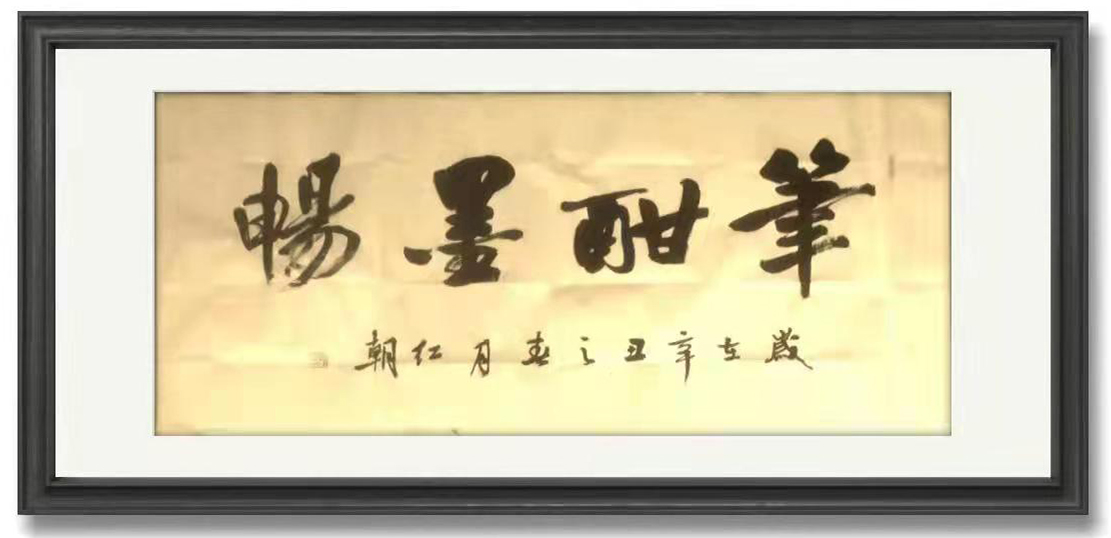 筆酣墨暢
歲在辛丑之春月红朝